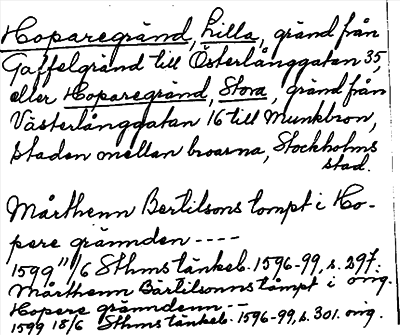 Hoparegränd, Lilla, gränd från
Gaffelgränd till Österlånggatan 35,
eller Hoparegränd, Stora, gränd från
Västerlånggatan 16 till Munkbron,
staden mellan broarna, Stockholms
stad.
Mårthenn Bertilsons tompt i Ho-
pere grännden ----
1599 11/6 Sthms tänkeb. 1596-99, s. 297.
Mårthenn Bärtilsonns tåmpt i orig.
Hopere gränndenn --
1599 18/6 Sthms tänkeb. 1596-99, s. 301. orig.